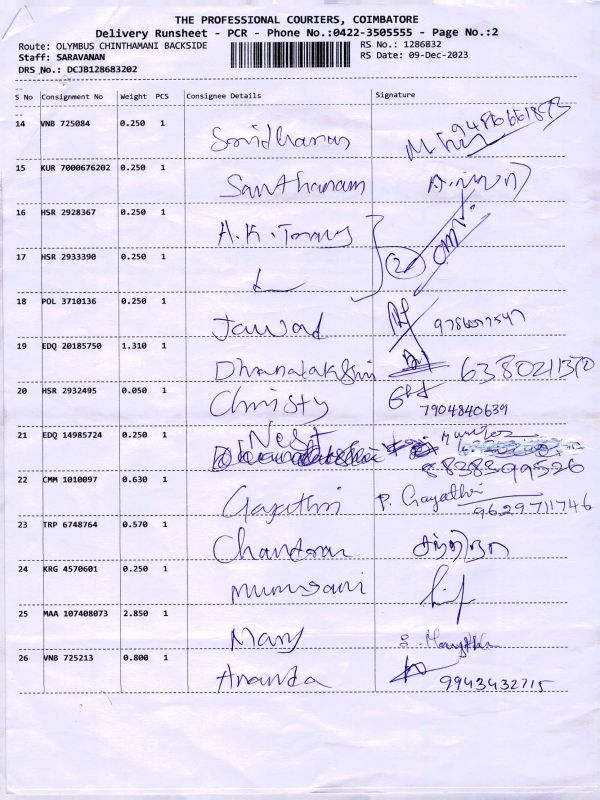 THE PROFESSIONAL COURIERS, COIMBATORE
Delivery Runsheet - PCR - Phone No.:0422-3505555 - Page No.:2
Route: OLYMBUS CHINTHAMANI BACKSIDE RS No.: 1286832
Staff: SARAVANAN RS Date: 09-Dec-2023
DRS No.: DCJB128683202
S No Consignment No Weight PCS Consignee Details Signature
14 VNB 725084 0.250 1
15 KUR 7000676202 0.250 1 Santhanam
16 HSR 2928367 0.250 1
17 HSR 2933390 0.250 1 2
18 POL 3710136 0.250 1 Jawad
19 EDQ 20185750 1.310 1 Dhanalakshmi
20 HSR 2932495 0.050 1 Christy 7904840639
21 EDQ 14985724 0.250 1 Nest 8838399526
22 CMM 1010097 0.630 1 Gayathri P. Gayathri 9629711746
23 TRP 6748764 0.570 1
24 KRG 4570601 0.250 1
25 MAA 107408073 2.850 1 Mary
26 VNB 725213 0.800 1 Ananda 9943432715